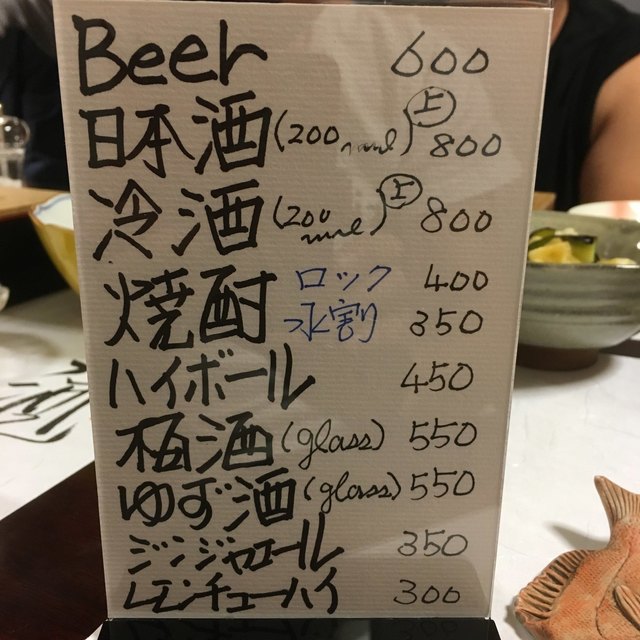 Beer 600
日本酒(200ml) 上 800
冷酒(200ml) 上 800
焼酎 ロック 400
水割 350
ハイボール 450
梅酒(glass) 550
ゆず酒(glass) 550
ジンジャエール 350
レモンチューハイ 300